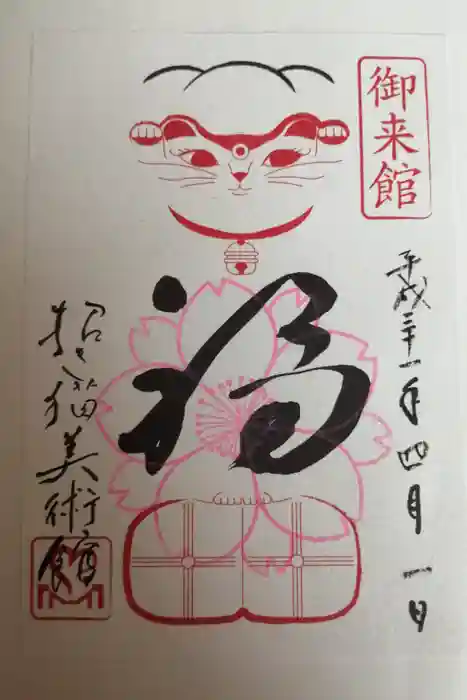 御来館
平成三十一年四月一日
福
招き猫美術館